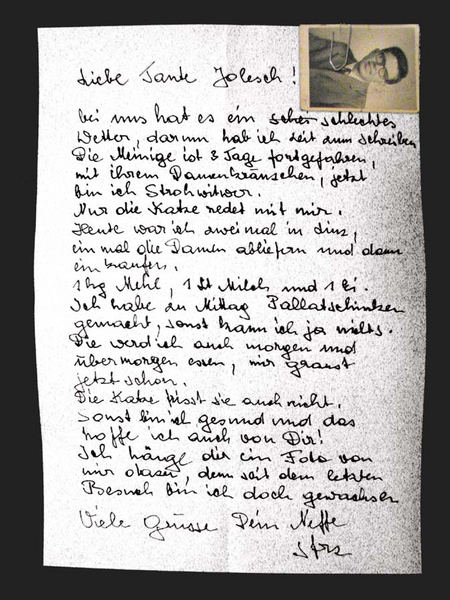 Liebe Tante Jolesch!
bei uns hat es ein schlechtes
Wetter, darum hab ich Zeit zum schreiben
Die Meinige ist 3 Tage fortgefahren,
mit ihrem Damenkränzchen, jetzt
bin ich Strohwitwer.
Nur die Katze redet mit mir.
Heute war ich zweimal in Linz,
ein mal die Damen abliefern und dann
einkaufen.
1 kg Mehl, 1 Lt Milch und 1 Ei.
Ich habe zu Mittag Pallatschinken
gemacht, sonst kann ich ja nichts.
Die werd ich auch morgen und
übermorgen essen, mir graust
jetzt schon.
Die Katze frisst sie auch nicht.
Sonst bin ich gesund und das
hoffe ich auch von Dir!
Ich hänge dir ein Foto von
mir dazu, denn seit dem letzten
Besuch bin ich doch gewachsen
Viele Grüsse Dein Neffe